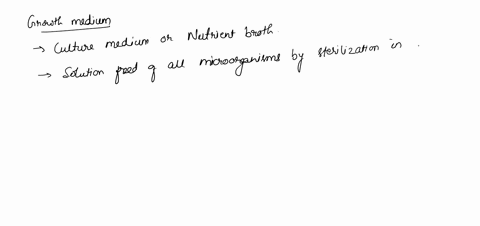 Growth medium
→ Culture medium or Nutrient broth.
→ Solution freed of all microorganisms by sterilization in .